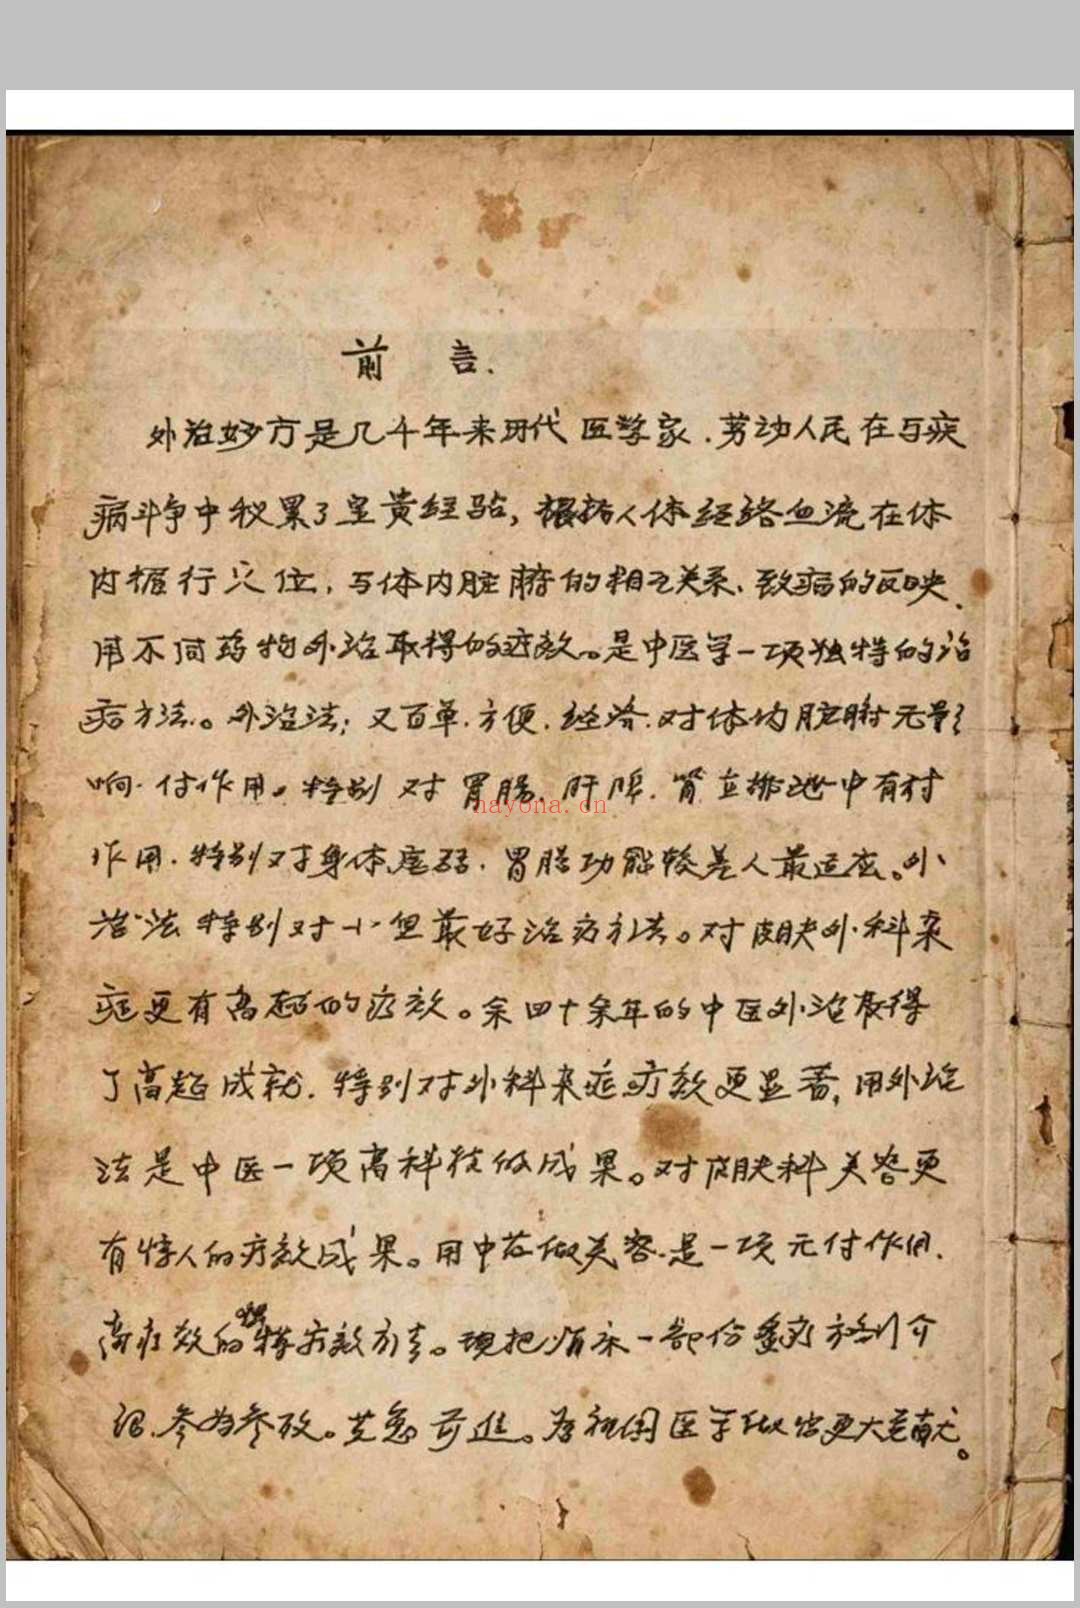 前 言.
外治妙方是几千年来历代医学家.劳动人民在与疾
病斗争中积累了宝贵经验,根据人体经络血流在体
内循行穴位,与体内脏腑的相互关系、致病的反映、
用不同药物外治取得的疗效。是中医学一项独特的治
病方法。外治法;又百单.方便.经济.对体内脏腑无影
响.付作用。特别对胃肠.肝脾.肾立排泄中有付
作用.特别对身体虚弱.胃肠功能较差人最适应。外
治法特别对小儿最好治疗方法。对皮肤外科杂
症更有高超的疗效。余四十余年的中医外治取得
了高超成就.特别对外科杂症疗效更显著,用外治
法是中医一项高科技的成果。对皮肤科美容更
有惊人的疗效成果。用中药做美容.是一项无付作用.
高疗效的特疗效方法。现把临床一部份重要方剂介
绍.参为参考。共急可进。为祖国医学做出更大贡献。
nayona.cn